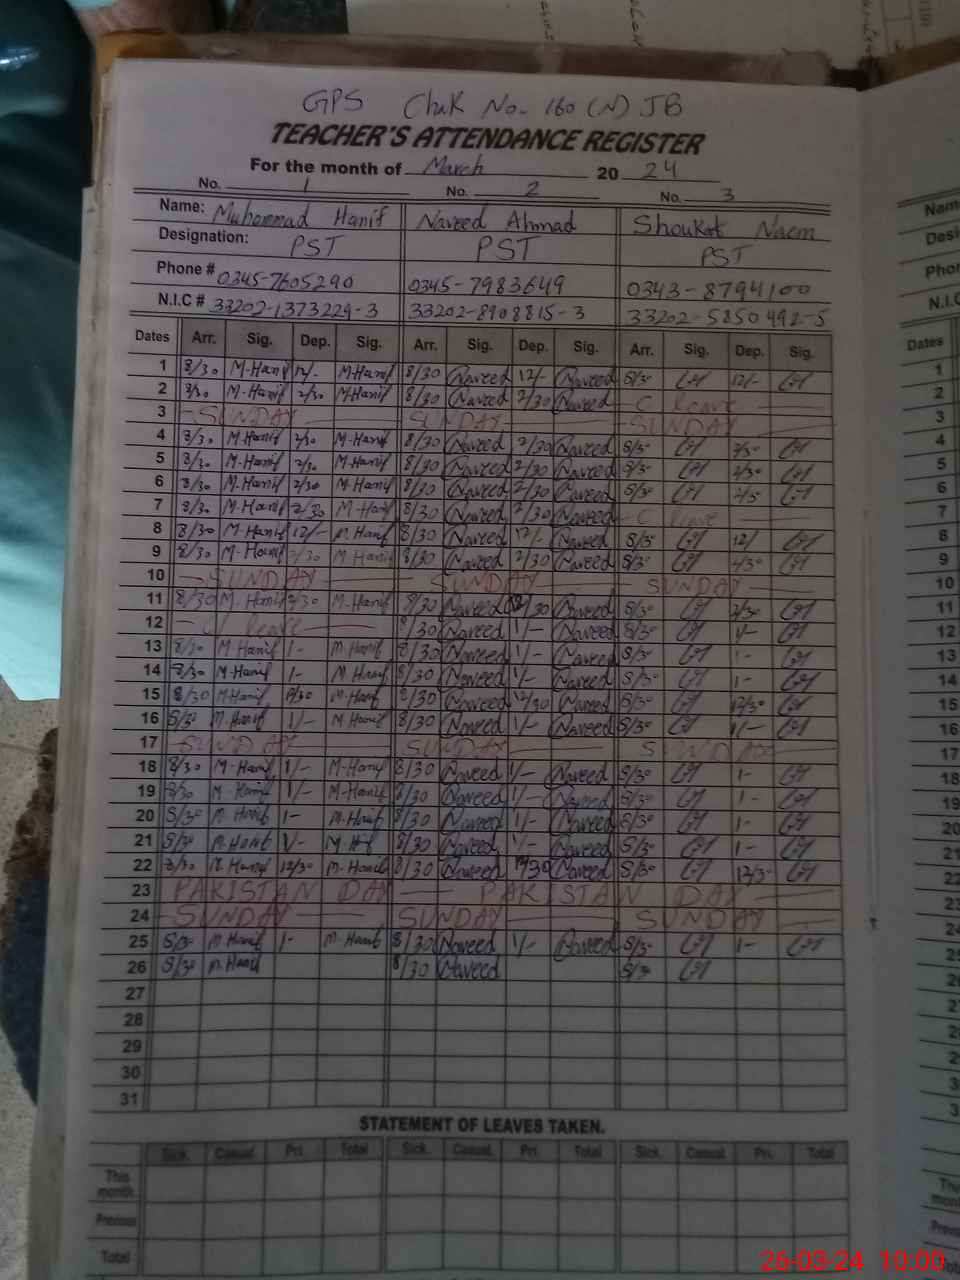 GPS Chak No. 160 (N) JB
TEACHER'S ATTENDANCE REGISTER
For the month of March 20 24
No. 1 No. 2 No. 3
Name: Muhammad Hanif Naveed Ahmad Shoukat Naem
Designation: PST PST PST
Phone # 0345-7605290 0345-7983649 0343-8794100
N.I.C # 33202-1373229-3 33202-8908815-3 33202-5850492-5
Dates Arr. Sig. Dep. Sig. Arr. Sig. Dep. Sig. Arr. Sig. Dep. Sig.
1 8/30 M-Hanif 12/- M-Hanif 8/30 Naveed 12/- Naveed 8/30 12/-
2 8/30 M-Hanif 2/30 M-Hanif 8/30 Naveed 2/30 Naveed C leave
3 SUNDAY SUNDAY SUNDAY
4 8/30 M-Hanif 2/30 M-Hanif 8/30 Naveed 2/30 Naveed 8/30 2/30
5 8/30 M-Hanif 2/30 M-Hanif 8/30 Naveed 2/30 Naveed 8/30 2/30
6 8/30 M-Hanif 2/30 M-Hanif 8/30 Naveed 2/30 Naveed 8/30
7 8/30 M-Hanif 2/30 M-Hanif 8/30 Naveed 2/30 Naveed C leave
8 8/30 M-Hanif 12/- M-Hanif 8/30 Naveed 12/- Naveed 8/30 12/
9 8/30 M-Hanif 2/30 M-Hanif 8/30 Naveed 2/30 Naveed 8/30 2/30
10 SUNDAY SUNDAY SUNDAY
11 8/30 M-Hanif 2/30 M-Hanif 8/30 Naveed 2/30 Naveed 8/30 2/30
12 C leave 8/30 Naveed 1/- Naveed 8/30 1/-
13 8/30 M-Hanif 1- M-Hanif 8/30 Naveed 1/- Naveed 8/30 1-
14 8/30 M-Hanif 1- M-Hanif 8/30 Naveed 1/- Naveed 8/30 1-
15 8/30 M-Hanif 12/30 M-Hanif 8/30 Naveed 12/30 Naveed 8/30 12/30
16 8/30 M-Hanif 1/- M-Hanif 8/30 Naveed 1/- Naveed 8/30 1/-
17 SUNDAY SUNDAY SUNDAY
18 8/30 M-Hanif 1/- M-Hanif 8/30 Naveed 1/- Naveed 8/30 1-
19 8/30 M-Hanif 1/- M-Hanif 8/30 Naveed 1/- Naveed 8/30 1-
20 8/30 M-Hanif 1- M-Hanif 8/30 Naveed 1/- Naveed 8/30 1-
21 8/30 M-Hanif 1/- M-Hanif 8/30 Naveed 1/- Naveed 8/30 1-
22 8/30 M-Hanif 12/30 M-Hanif 8/30 Naveed 12/30 Naveed 8/30 12/30
23 PAKISTAN DAY PAKISTAN DAY
24 SUNDAY SUNDAY SUNDAY
25 8/30 M-Hanif 1- M-Hanif 8/30 Naveed 1/- Naveed 8/30 1-
26 8/30 M-Hanif 8/30 Naveed 8/30
27
28
29
30
31
STATEMENT OF LEAVES TAKEN.
Sick. Casual. Pri. Total Sick. Casual. Pri. Total Sick. Casual. Pri. Total
This month.
Previous
Total
26-03-24 10:00